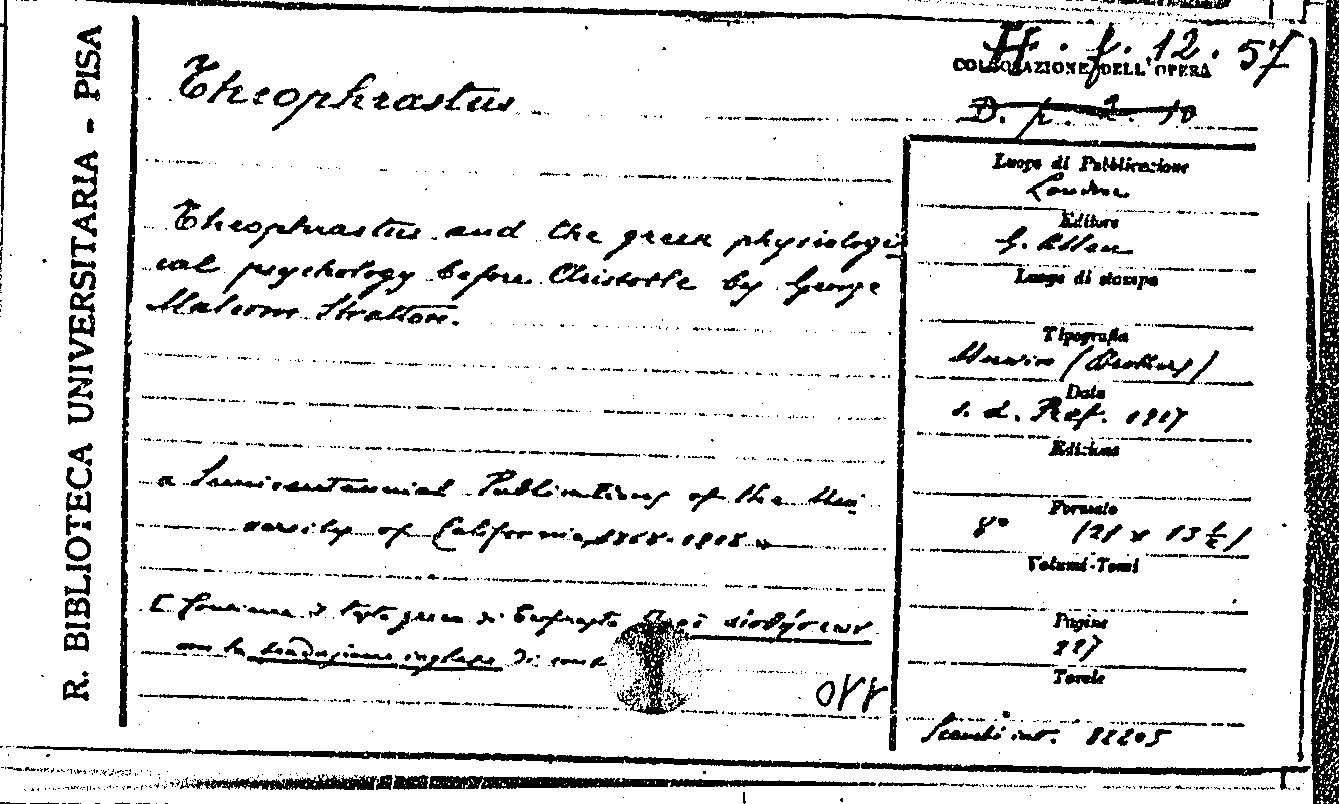 R. BIBLIOTECA UNIVERSITARIA - PISA
Theophrastus
H. f. 12. 57
COLLOCAZIONE DELL'OPERA
D. p. 2. 10
Theophrastus and the greek physiologi-
cal psychology before Aristotle by George
Malcom Stratton.
« Semicentennial Publications of the Uni
versity of California, 1868-1918 »
[ Contiene il testo greco di Teofrasto Περὶ αἰσθήσεων
con la traduzione inglese di
Luogo di Pubblicazione
London
Editore
G. Allen
Luogo di stampa
Tipografia
Unwin (Brothers)
Data
s. d. Pref. 1917
Edizione
Formato
8° (21 x 13 ½)
Volumi-Tomi
Pagine
227
Tavole
Scambi int. 82205